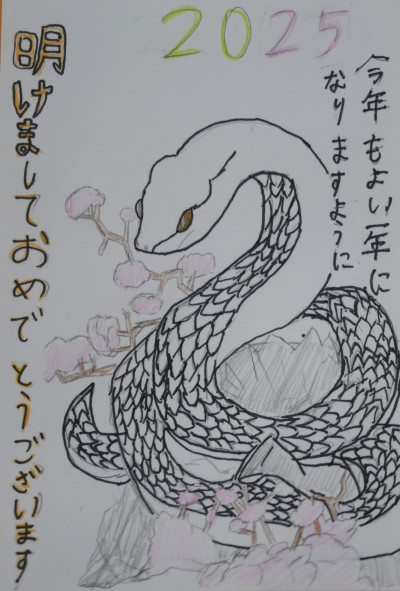 2025
今年もよい一年に
なりますように
明けましておめでとうございます